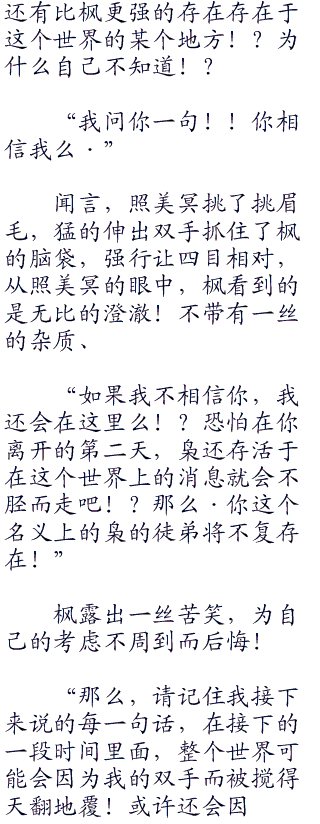 还有比枫更强的存在存在于
这个世界的某个地方！？为
什么自己不知道！？
“我问你一句！！你相
信我么·”
闻言，照美冥挑了挑眉
毛，猛的伸出双手抓住了枫
的脑袋，强行让四目相对，
从照美冥的眼中，枫看到的
是无比的澄澈！不带有一丝
的杂质、
“如果我不相信你，我
还会在这里么！？恐怕在你
离开的第二天，枭还存活于
在这个世界上的消息就会不
胫而走吧！？那么·你这个
名义上的枭的徒弟将不复存
在！”
枫露出一丝苦笑，为自
己的考虑不周到而后悔！
“那么，请记住我接下
来说的每一句话，在接下的
一段时间里面，整个世界可
能会因为我的双手而被搅得
天翻地覆！或许还会因